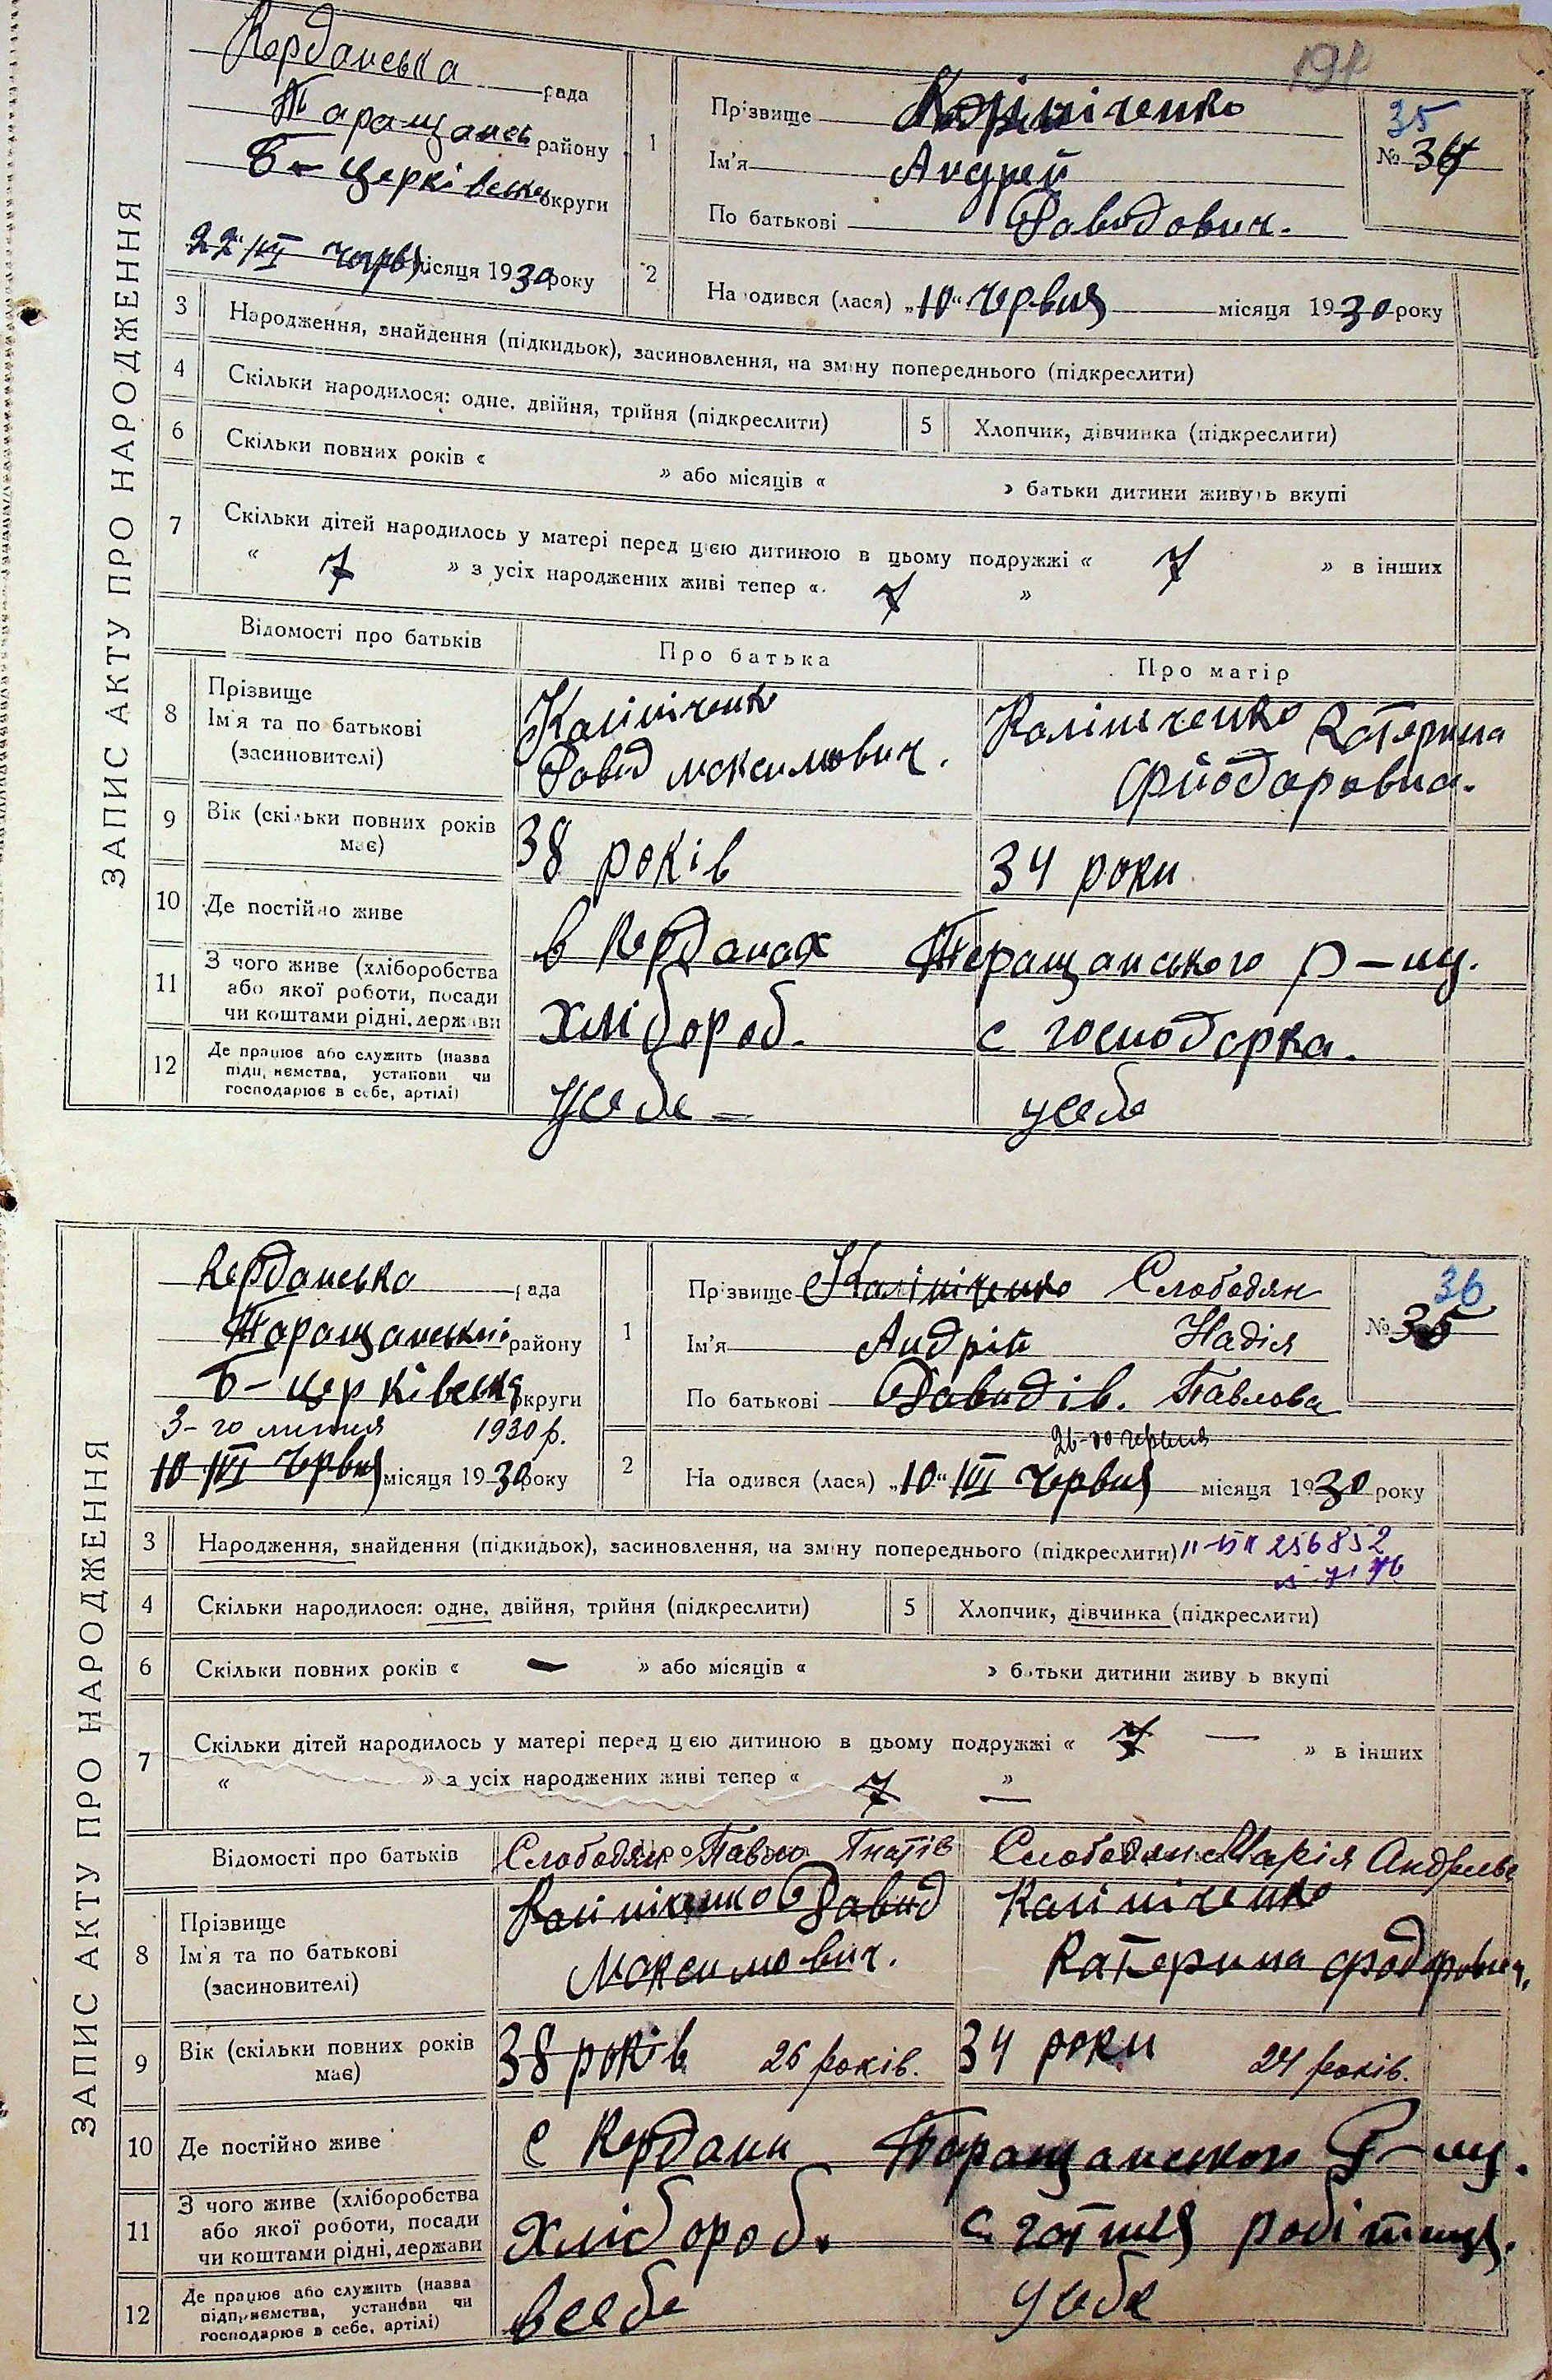 191
Керданська рада
Таращансь району
Б-Церківська округи
22 /VI червня місяця 1930 року
ЗАПИС АКТУ ПРО НАРОДЖЕННЯ
1
Прізвище Калініченко
Ім'я Андрей
По батькові Давидович.
35
№ 34
2
На одився (лася) „10“ червня місяця 1930 року
3 Народження, знайдення (підкидьок), засиновлення, на зміну попереднього (підкреслити)
4 Скільки народилося: одне, двійня, трійня (підкреслити)
5 Хлопчик, дівчинка (підкреслити)
6 Скільки повних років « » або місяців « » батьки дитини живуть вкупі
7 Скільки дітей народилось у матері перед цією дитиною в цьому подружжі « 7 » в інших
« 7 » з усіх народжених живі тепер « 7 »
Відомості про батьків
Про батька
Про матір
8 Прізвище
Ім'я та по батькові
(засиновителі)
Калініченко
Давид Максимович.
Калініченко Катерина
Фйодоровна.
9 Вік (скільки повних років має)
38 років
34 роки
10 Де постійно живе
в Керданах Таращанського р-ну.
11 З чого живе (хліборобства
або якої роботи, посади
чи коштами рідні, держави
хлібороб.
с господорка.
12 Де працює або служить (назва
підприємства, установи чи
господарює в себе, артілі)
усебе —
усебе
Керданська рада
Таращанський району
Б-церківська округи
3-го липня 1930 р.
10 /VI червня місяця 1930 року
ЗАПИС АКТУ ПРО НАРОДЖЕННЯ
1
Прізвище Калініченко Слободян
Ім'я Андрій Надія
По батькові Давидів. Павлова
36
№ 35
2
26-го червня
На одився (лася) „10“ /VI червня місяця 1930 року
3 Народження, знайдення (підкидьок), засиновлення, на зміну попереднього (підкреслити) 256852
4 Скільки народилося: одне, двійня, трійня (підкреслити)
5 Хлопчик, дівчинка (підкреслити)
6 Скільки повних років « — » або місяців « » батьки дитини живу ь вкупі
7 Скільки дітей народилось у матері перед цією дитиною в цьому подружжі « 7 — » в інших
« » з усіх народжених живі тепер « 7 » —
Відомості про батьків
Слободян Павло Гнатів
Слободян Марія Андрієв
8 Прізвище
Ім'я та по батькові
(засиновителі)
Калініченко Давид
Максимович.
Калініченко
Катерина Фодоровна.
9 Вік (скільки повних років має)
38 років 26 років.
34 роки 24 років.
10 Де постійно живе
с Кердани Таращанського Р-ну.
11 З чого живе (хліборобства
або якої роботи, посади
чи коштами рідні, держави
хлібороб.
12 Де працює або служить (назва
підприємства, установи чи
господарює в себе, артілі)
всебе
усебе